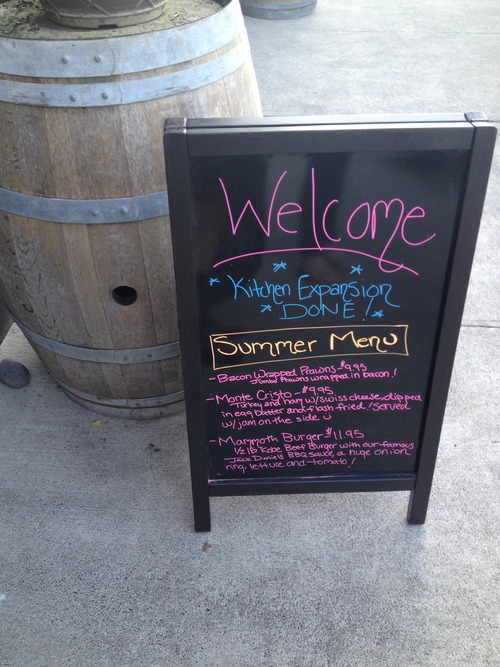 Welcome
Kitchen Expansion
DONE!
Summer Menu
- Bacon Wrapped Prawns - $9.95
Jumbo Prawns wrapped in bacon!
- Monte Cristo - $9.95
Turkey and ham w/swiss cheese, dipped
in egg batter and flash fried! Served
w/ jam on the side
- Mammoth Burger $11.95
1/2 lb Kobe Beef Burger with our famous
Jack Daniels BBQ sauce, a huge onion
ring, lettuce and tomato!